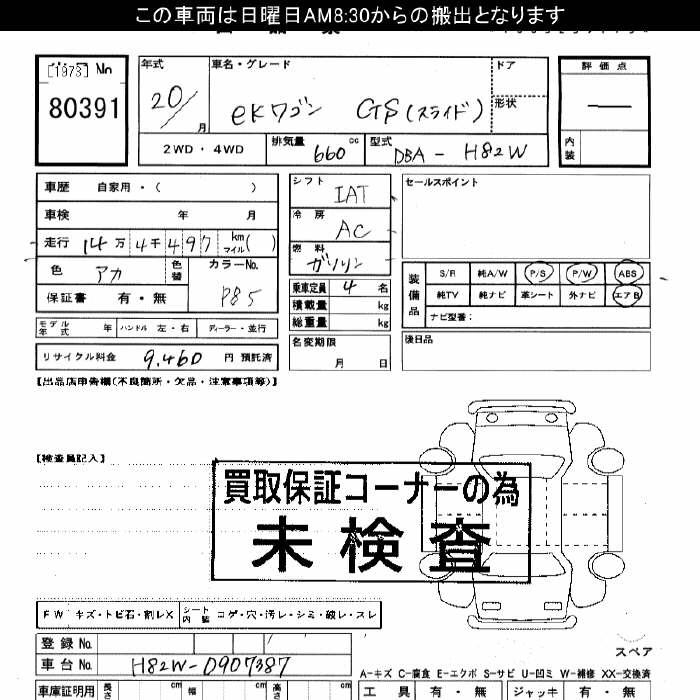 この車両は日曜日AM8:30からの搬出となります
[1973] No
80391
年式
20/
月
車名・グレード
eKワゴン GS(スライド)
ドア
形状
2WD・4WD
排気量
660 cc
型式
DBA - H82W
評価点
―
内装
車歴 自家用・( )
車検 年 月
走行 14万4千497 km マイル( )
色 アカ 色替 カラーNo. P85
保証書 有・無
モデル年式 年 ハンドル 左・右 ディーラー・並行
リサイクル料金 9,460 円 預託済
シフト IAT
冷房 AC
燃料 ガソリン
乗車定員 4 名
積載量 kg
総重量 kg
名変期限
月 日
セールスポイント
装備品
S/R 純A/W P/S P/W ABS
純TV 純ナビ 革シート 外ナビ エアB
ナビ型番：
後日品
【出品店申告欄(不良箇所・欠品・注意事項等)】
【検査員記入】
買取保証コーナーの為
未検査
FW キズ・トビ石・割レX シート内装 コゲ・穴・汚レ・シミ・破レ・スレ
登録 No.
車台 No. H82W-0907387
スペア
A-キズ C-腐食 E-エクボ S-サビ U-凹ミ W-補修 XX-交換済
車庫証明用 長さ cm 幅 cm 高さ cm
工具 有・無 ジャッキ 有・無